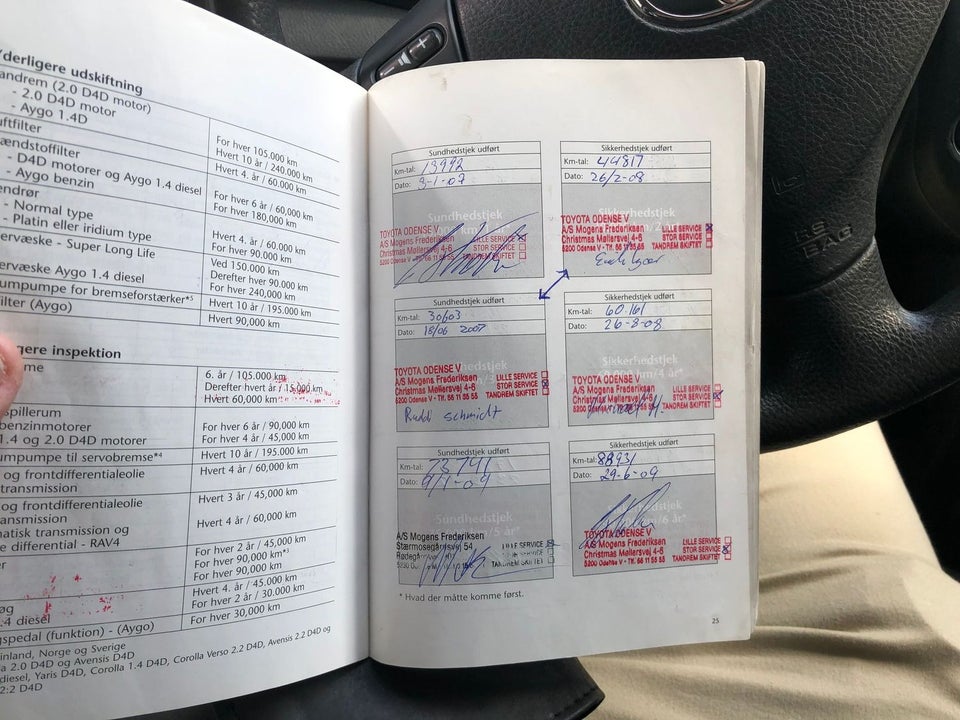 Yderligere udskiftning
andrem (2.0 D4D motor)
- 2.0 D4D motor
- Aygo 1.4D
For hver 105.000 km
Hvert 10 år / 240.000 km
uftfilter
Hvert 4. år / 60.000 km
ændstoffilter
- D4D motorer og Aygo 1.4 diesel
- Aygo benzin
For hver 6 år / 60,000 km
For hver 180,000 km
endrør
- Normal type
- Platin eller iridium type
Hvert 4. år / 60.000 km
For hver 90.000 km
ervæske - Super Long Life
Ved 150.000 km
Derefter hver 90.000 km
ervæske Aygo 1.4 diesel
For hver 240,000 km
umpumpe for bremseforstærker*5
Hvert 10 år / 195.000 km
filter (Aygo)
Hvert 90,000 km
gere inspektion
me
6. år / 105.000 km
Derefter hvert år / 15.000 km
Hvert 60,000 km
spillerum
benzinmotorer
1.4 og 2.0 D4D motorer
For hver 6 år / 90,000 km
For hver 4 år / 45,000 km
umpumpe til servobremse*4
Hvert 10 år / 195.000 km
og frontdifferentialeolie
transmission
Hvert 4 år / 60,000 km
og frontdifferentialeolie
ansmission
Hvert 3 år / 45,000 km
natisk transmission og
e differential - RAV4
Hvert 4 år / 60,000 km
er
For hver 2 år / 45,000 km
For hver 90,000 km*3
For hver 90,000 km
øg
.4 diesel
Hvert 4. år / 45.000 km
For hver 2 år / 30.000 km
gspedal (funktion) - (Aygo)
For hver 30,000 km
inland, Norge og Sverige
a 2.0 D4D og Avensis D4D
diesel, Yaris D4D, Corolla 1.4 D4D, Corolla Verso 2.2 D4D, Avensis 2.2 D4D og
2:2 D4D
Sundhedstjek udført
Km-tal: 13992
Dato: 3-1-07
Sundhedstjek
TOYOTA ODENSE V
A/S Mogens Frederiksen
Christmas Møllersvej 4-6
5200 Odense V - Tlf. 66 11 55 55
LILLE SERVICE
STOR SERVICE
TANDREM SKIFTET
Sikkerhedstjek udført
Km-tal: 44817
Dato: 26/2-08
Sikkerhedstjek
TOYOTA ODENSE V
A/S Mogens Frederiksen
Christmas Møllersvej 4-6
5200 Odense V - Tlf. 66 11 55 55
LILLE SERVICE
STOR SERVICE
TANDREM SKIFTET
Sundhedstjek udført
Km-tal: 30603
Dato: 18/06 2007
TOYOTA ODENSE V
A/S Mogens Frederiksen
Christmas Møllersvej 4-6
5200 Odense V - Tlf. 66 11 55 55
LILLE SERVICE
STOR SERVICE
TANDREM SKIFTET
Ruddi schmidt
Sikkerhedstjek udført
Km-tal: 60.161
Dato: 26-8-08
Sikkerhedstjek
TOYOTA ODENSE V
A/S Mogens Frederiksen
Christmas Møllersvej 4-6
5200 Odense V - Tlf. 66 11 55 55
LILLE SERVICE
STOR SERVICE
TANDREM SKIFTET
Sundhedstjek udført
Km-tal: 73741
Dato: 9/1-09
Sundhedstjek
A/S Mogens Frederiksen
Stærmosegårdsvej 54
LILLE SERVICE
STOR SERVICE
TANDREM SKIFTET
Sikkerhedstjek udført
Km-tal: 88931
Dato: 29-6-09
Sikkerhedstjek
TOYOTA ODENSE V
A/S Mogens Frederiksen
Christmas Møllersvej 4-6
5200 Odense V - Tlf. 66 11 55 55
LILLE SERVICE
STOR SERVICE
TANDREM SKIFTET
* Hvad der måtte komme først.
25
SRS
AIRBAG